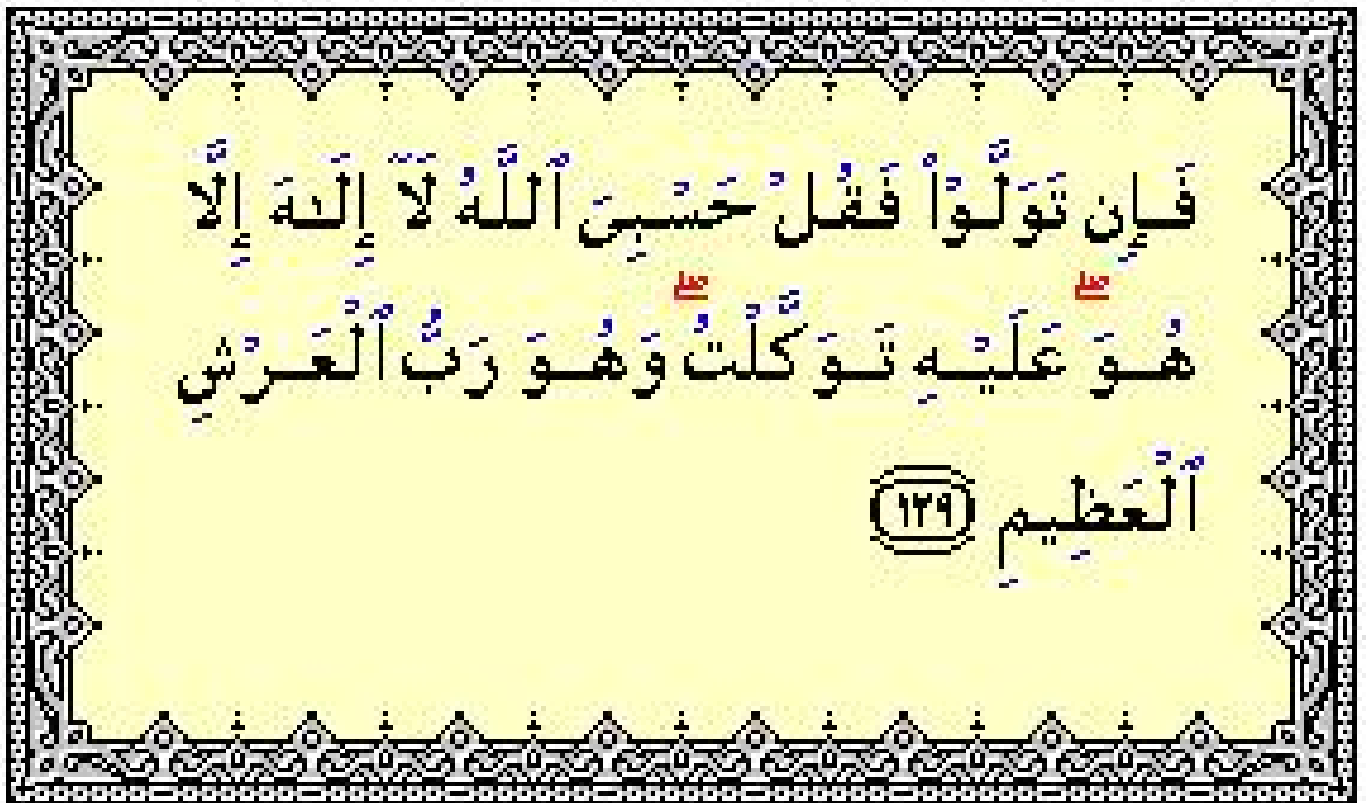 فَإِن تَوَلَّوْا۟ فَقُلْ حَسْبِىَ ٱللَّهُ لَآ إِلَـٰهَ إِلَّا
هُوَ ۖ عَلَيْهِ تَوَكَّلْتُ ۖ وَهُوَ رَبُّ ٱلْعَرْشِ
ٱلْعَظِيمِ ١٢٩